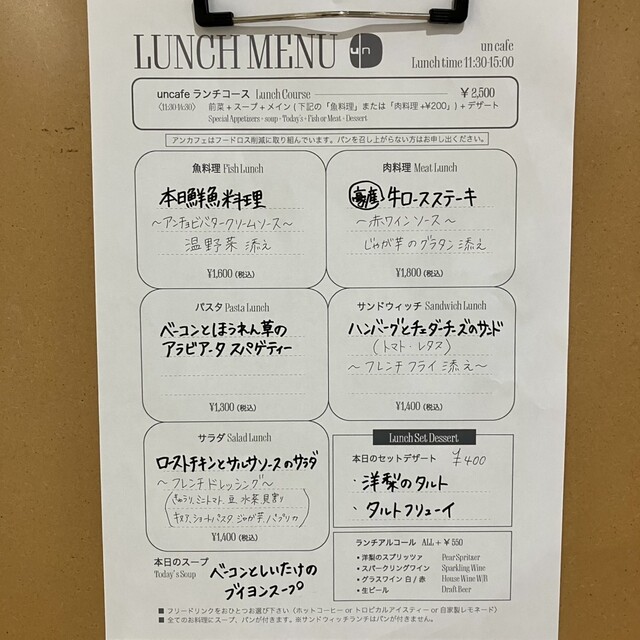 LUNCH MENU un
un cafe
Lunch time 11:30-15:00
uncafe ランチコース Lunch Course ¥2,500
〈11:30-14:30〉 前菜+スープ+メイン(下記の「魚料理」または「肉料理 +¥200」)+デザート
Special Appetizers・soup・Today's・Fish or Meat・Dessert
アンカフェはフードロス削減に取り組んでいます。パンを召し上がらない方はお申し出ください。
魚料理 Fish Lunch
本日鮮魚料理
～アンチョビバタークリームソース～
温野菜 添え
¥1,600 (税込)
肉料理 Meat Lunch
豪産 牛ロースステーキ
～赤ワインソース～
じゃが芋のグラタン添え
¥1,800 (税込)
パスタ Pasta Lunch
ベーコンとほうれん草の
アラビアータ スパゲティー
¥1,300 (税込)
サンドウィッチ Sandwich Lunch
ハンバーグとチェダーチーズのサンド
(トマト・レタス)
～フレンチフライ添え～
¥1,400 (税込)
サラダ Salad Lunch
ローストチキンとサルサソースのサラダ
～フレンチドレッシング～
(きゅうり、ミニトマト、豆、水菜、貝割り
キヌア、ショートパスタ、ジャガ芋、パプリカ)
¥1,400 (税込)
Lunch Set Dessert
本日のセットデザート ¥400
・洋梨のタルト
・タルトフリューイ
本日のスープ
Today's Soup
ベーコンとしいたけの
ブイヨンスープ
ランチアルコール ALL + ¥550
・洋梨のスプリッツァ Pear Spritzer
・スパークリングワイン Sparkling Wine
・グラスワイン 白 / 赤 House Wine W/R
・生ビール Draft Beer
■ フリードリンクをおひとつお選び下さい(ホットコーヒー or トロピカルアイスティー or 自家製レモネード)
■ 全てのお料理にスープ、パンが付きます。※サンドウィッチランチはパンが付きません。